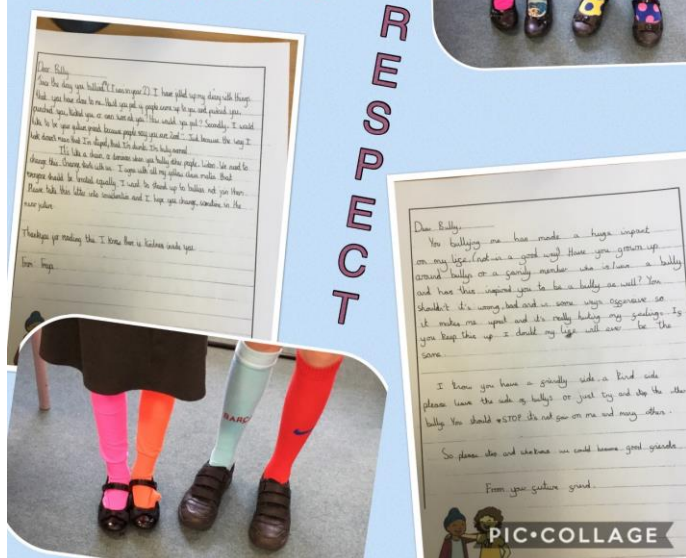 Dear Bully,
Since the day you bullied me (I was in year 2). I have filled up my diary with things
that you have done to me. How'd you feel if people came up to you and pushed you,
punched you, kicked you or even swore at you? How would you feel? Secondly, I would
like to be your friend because people say you are "Cool". Just because the way I
look doesn't mean that I'm stupid, that I'm dumb. I'm truly normal.
It's like a when you bully other people. Listen. We need to
change this. I agree with all my class mates that
everyone should be treated equally. I want to stand up to bullies not join them.
Please take this letter into consideration and I hope you change, sometime in the
near
Thankyou for reading this. I know there is kindness inside you.
From: Freya
RESPECT
Dear Bully,
You bullying me has made a huge impact
on my life (not in a good way) Have you grown up
around bullys or a family member who is/was a bully
and has this inspired you to be a bully as well? You
shouldn't it's wrong, bad and in some ways offensive so
it makes me upset and it's really hurting my feelings. If
you keep this up I doubt my life will ever be the
same.
I know you have a friendly side a kind side
please leave the side of bullys or just try and stop the other
bullys. You should STOP it's not fair on me and many others.
So please stop and who knows we could become good friends.
From your future friend.
BARÇA
PIC•COLLAGE